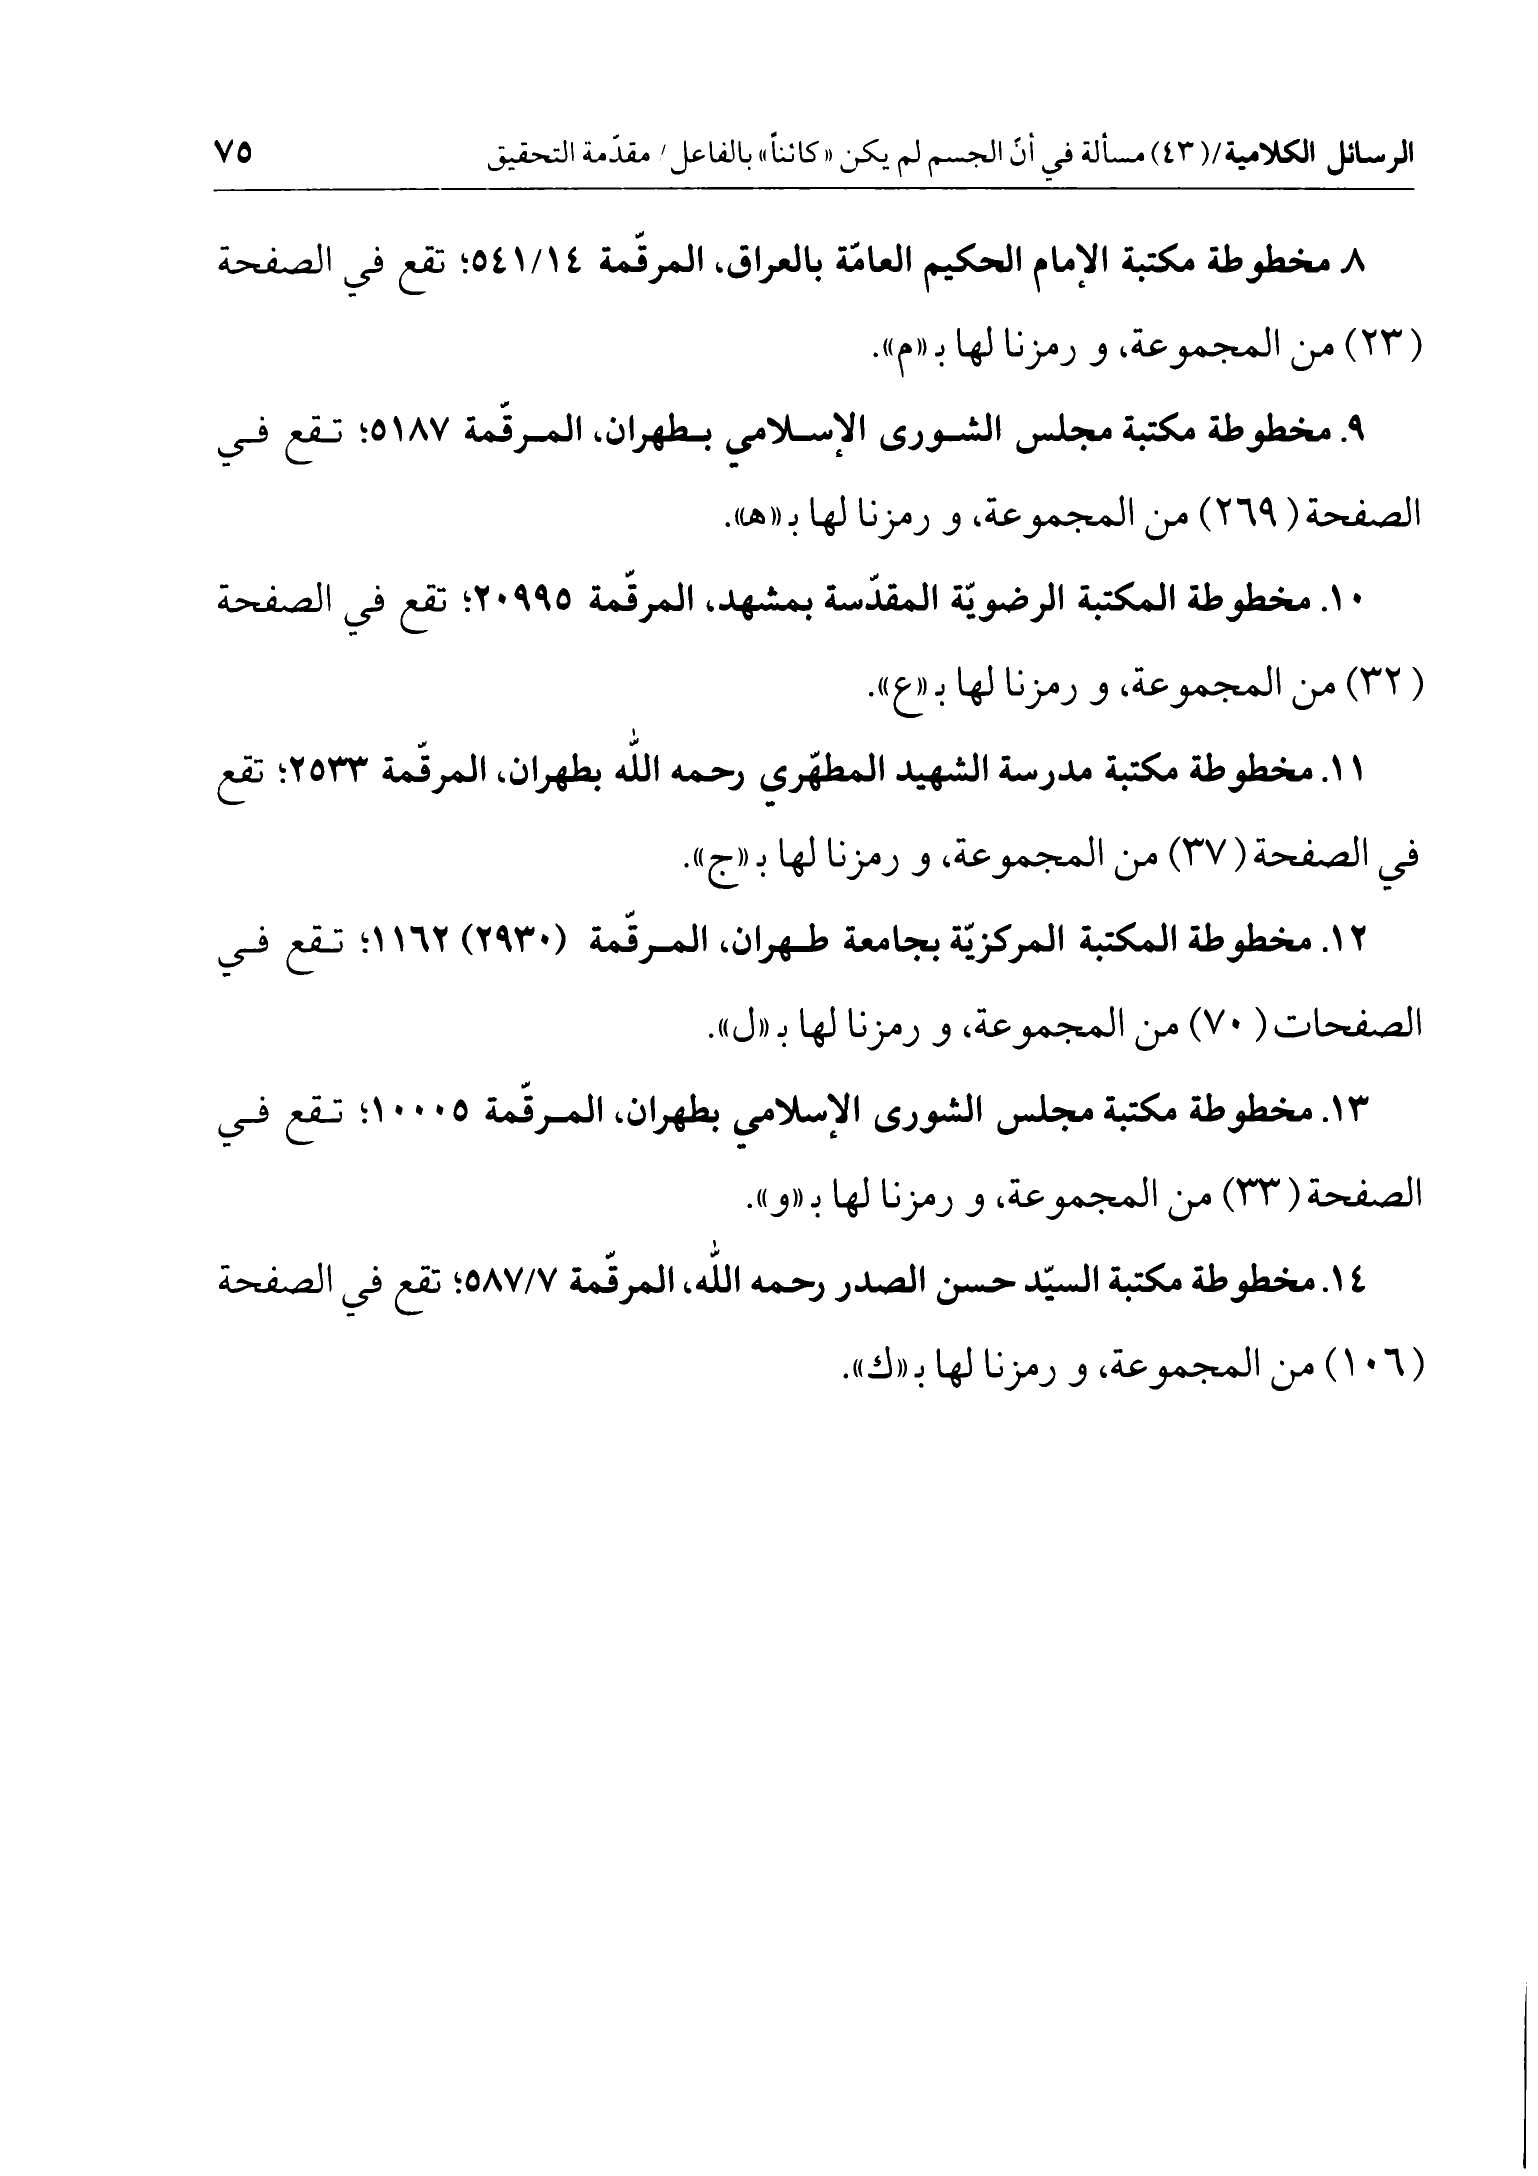 الرسائل الكلامية/(٤٣) مسألة في أنّ الجسم لم يكن «كائناً» بالفاعل / مقدّمة التحقيق ٧٥
٨. مخطوطة مكتبة الإمام الحكيم العامّة بالعراق، المرقّمة ٥٤١/١٤؛ تقع في الصفحة
(٢٣) من المجموعة، و رمزنا لها بـ «م».
٩. مخطوطة مكتبة مجلس الشورى الإسلامي بطهران، المرقّمة ٥١٨٧؛ تقع في
الصفحة (٢٦٩) من المجموعة، و رمزنا لها بـ «هـ».
١٠. مخطوطة المكتبة الرضويّة المقدّسة بمشهد، المرقّمة ٢٠٩٩٥؛ تقع في الصفحة
(٣٢) من المجموعة، و رمزنا لها بـ «ع».
١١. مخطوطة مكتبة مدرسة الشهيد المطهّري رحمه اللّٰه بطهران، المرقّمة ٢٥٣٣؛ تقع
في الصفحة (٣٧) من المجموعة، و رمزنا لها بـ «ج».
١٢. مخطوطة المكتبة المركزيّة بجامعة طهران، المرقّمة (٢٩٣٠) ١١٦٢؛ تقع في
الصفحات (٧٠) من المجموعة، و رمزنا لها بـ «ل».
١٣. مخطوطة مكتبة مجلس الشورى الإسلامي بطهران، المرقّمة ١٠٠٠٥؛ تقع في
الصفحة (٣٣) من المجموعة، و رمزنا لها بـ «و».
١٤. مخطوطة مكتبة السيّد حسن الصدر رحمه اللّٰه، المرقّمة ٥٨٧/٧؛ تقع في الصفحة
(١٠٦) من المجموعة، و رمزنا لها بـ «ك».